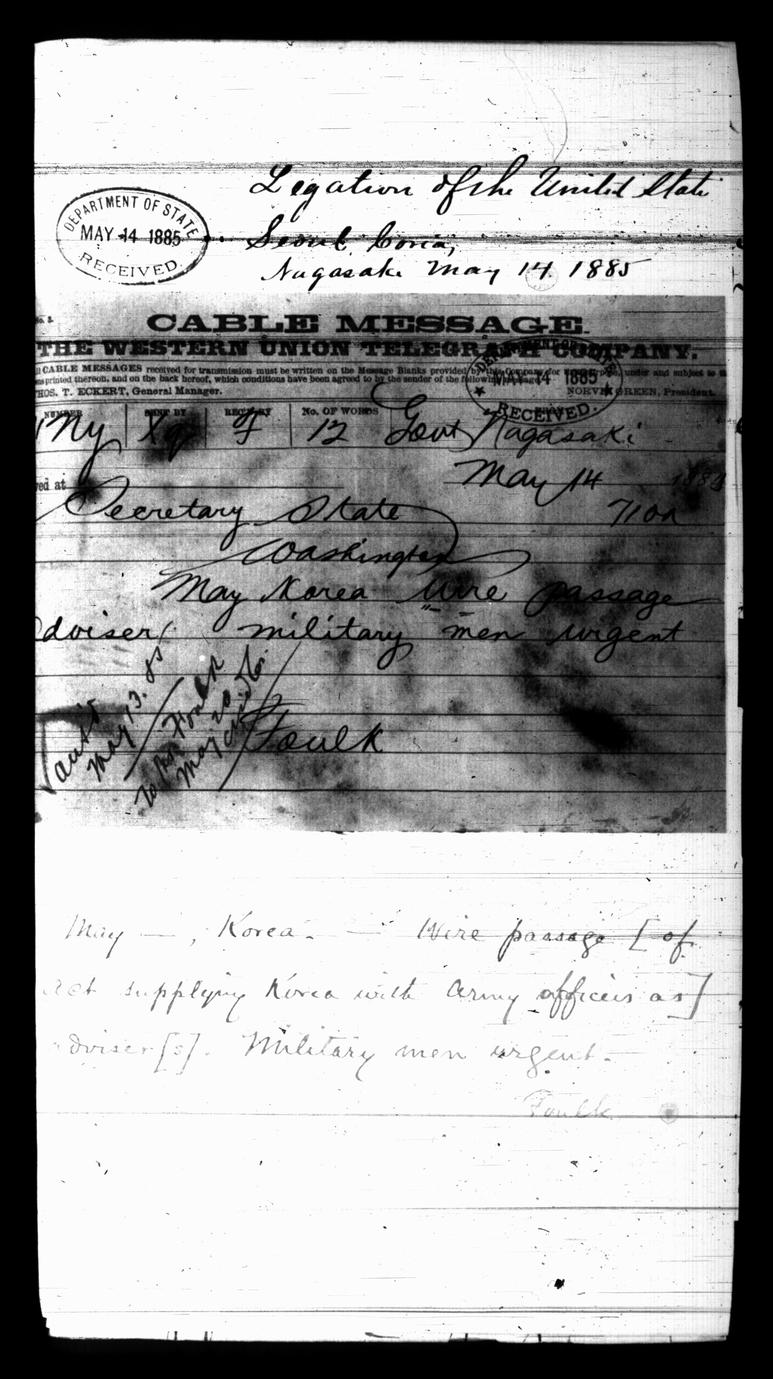 Legation of the United State
Seoul, Corea,
Nagasaki May 14. 1885
DEPARTMENT OF STATE
MAY 14 1885
RECEIVED.
CABLE MESSAGE.
THE WESTERN UNION TELEGRAPH COMPANY.
CABLE MESSAGES received for transmission must be written on the Message Blanks provided by this Company for under and subject to
printed thereon, and on the back hereof, which conditions have been agreed to by the sender of the following message.
HOS. T. ECKERT, General Manager. NORVIN GREEN, President.
DEPARTMENT OF STATE
MAY 14 1885
RECEIVED.
NUMBER SENT BY REC'D BY No. OF WORDS
Ny F 12 Govt Nagasaki
ved at May 14 188
Secretary State
Washington
May Korea wire passage
dviser military men urgent
Foulk
May 13. 85
Foulk
May —, Korea. — Wire passage [of
Act supplying Korea with Army officers as]
dviser[s]. Military men urgent.
Foulk